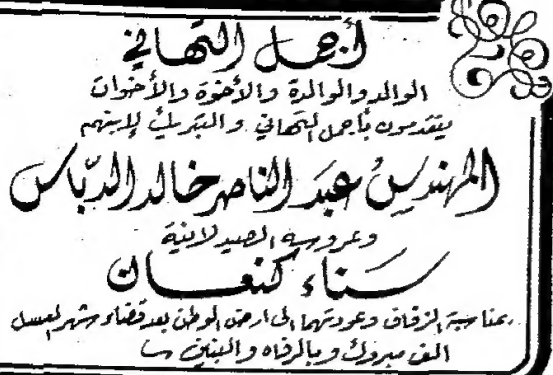 أجمل التهاني
الوالد والوالدة والأخوة والأخوات
يتقدمون بأجمل التهاني والتبريك لابنهم
المهندس عبد الناصر خالد الدبّاس
وعروسه الصيدلانية
سناء كنعان
بمناسبة الزفاف وعودتهما الى ارض الوطن بعد قضاء شهر العسل
الف مبروك وبالرفاه والبنين